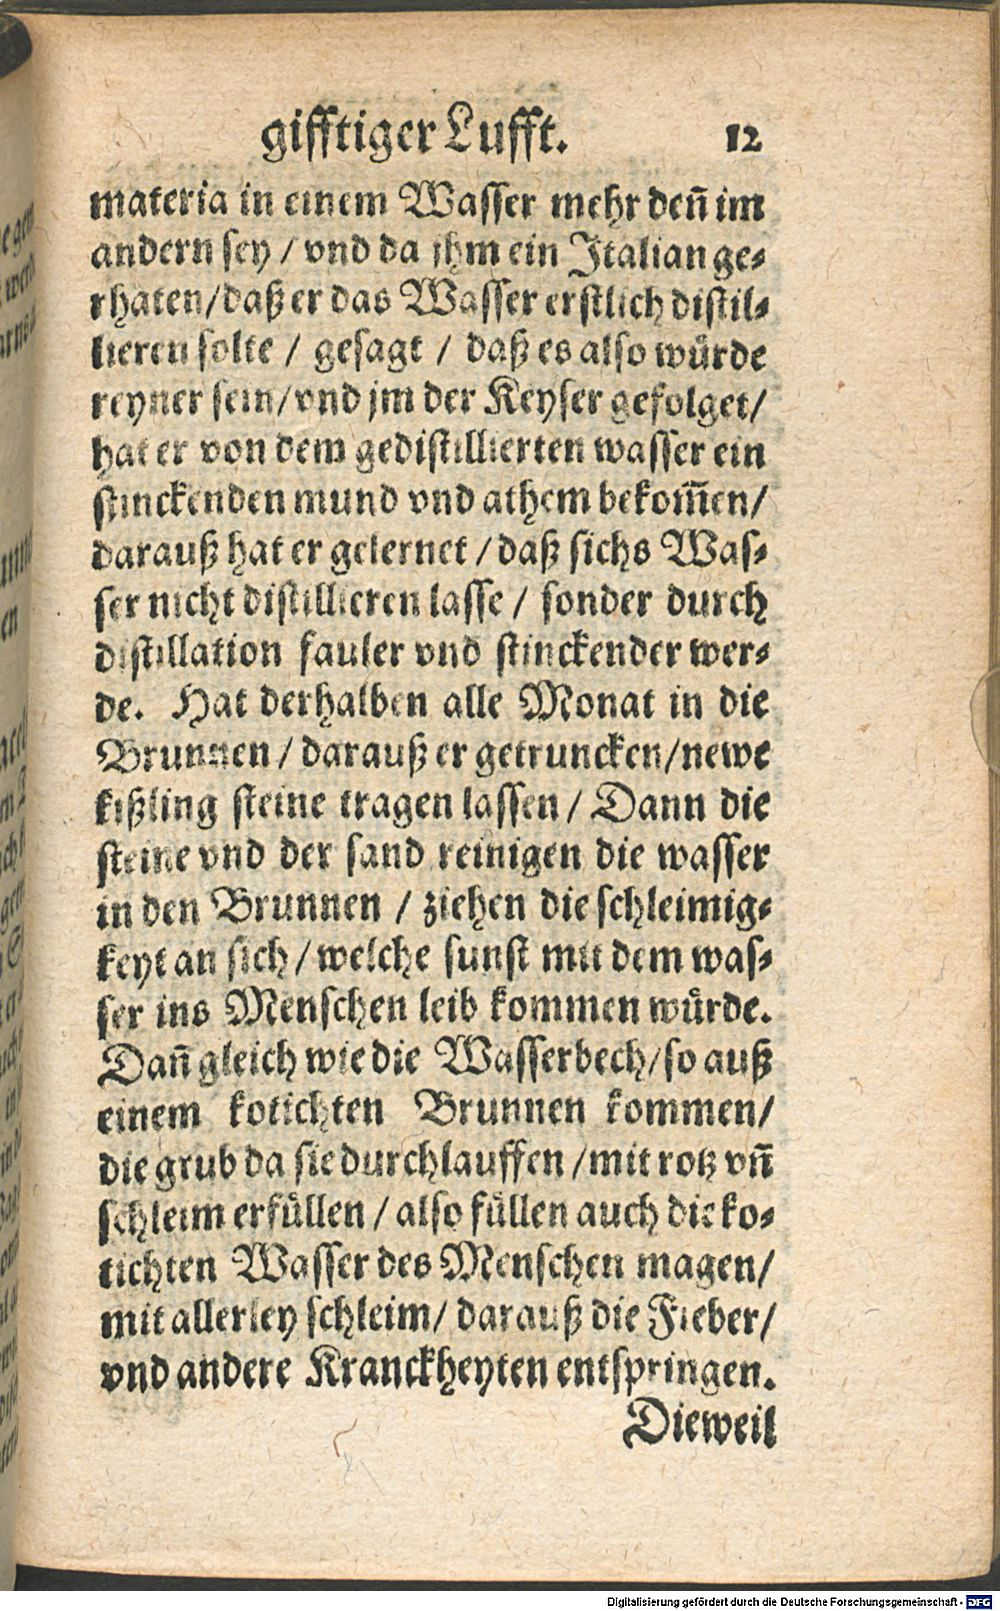 gifftiger Lufft. 12
materia in einem Wasser mehr deñ im
andern sey / vnd da jhm ein Italian ge⸗
rhaten/daß er das Wasser erstlich distil⸗
lieren solte / gesagt / daß es also würde
reyner sein/vnd jm der Keyser gefolget/
hat er von dem gedistillierten wasser ein
stinckenden mund vnd athem bekom̃en/
darauß hat er gelernet / daß sichs Was⸗
ser nicht distillieren lasse / sonder durch
distillation fauler vnd stinckender wer⸗
de. Hat derhalben alle Monat in die
Brunnen / darauß er getruncken/newe
kißling steine tragen lassen / Dann die
steine vnd der sand reinigen die wasser
in den Brunnen / ziehen die schleimig⸗
keyt an sich / welche sunst mit dem was⸗
ser ins Menschen leib kommen würde.
Dañ gleich wie die Wasserbech/so auß
einem kotichten Brunnen kommen/
die grub da sie durchlauffen /mit rotz vñ
schleim erfüllen / also füllen auch die ko⸗
tichten Wasser des Menschen magen/
mit allerley schleim/ darauß die Fieber/
vnd andere Kranckheyten entspringen.
Dieweil
Digitalisierung gefördert durch die Deutsche Forschungsgemeinschaft - DFG